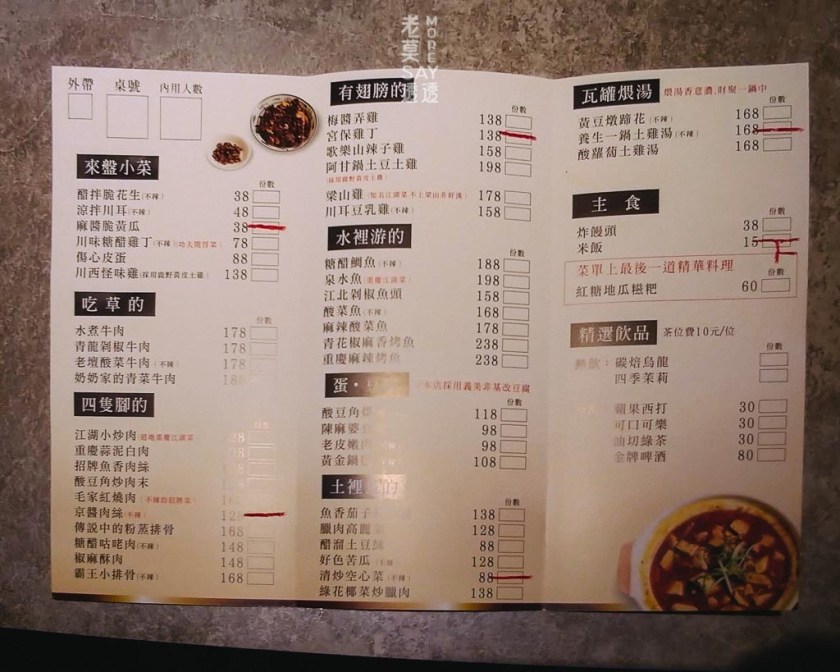 老莫 MORE
SAY 透透
外帶 桌號 內用人數
來盤小菜
份數
醋拌脆花生(不辣) 38
涼拌川耳(不辣) 48
麻醬脆黃瓜 38
川味糖醋雞丁(不辣)(功夫開胃菜) 78
傷心皮蛋 88
川西怪味雞(採用鹿野黃皮土雞) 138
吃草的
份數
水煮牛肉 178
青龍剁椒牛肉 178
老壇酸菜牛肉(不辣) 178
奶奶家的青菜牛肉
四隻腳的
份數
江湖小炒肉(道地重慶江湖菜)
重慶蒜泥白肉
招牌魚香肉絲
酸豆角炒肉末
毛家紅燒肉(不辣功招牌菜)
京醬肉絲(不辣)
傳說中的粉蒸排骨 168
糖醋咕咾肉(不辣) 148
椒麻酥肉 148
霸王小排骨(不辣) 168
有翅膀的
份數
梅醬弄雞 138
宮保雞丁 138
歌樂山辣子雞 158
阿甘鍋土豆土雞 198
(採用鹿野黃皮土雞)
梁山雞(知名江湖菜不上梁山弄好漢) 178
川耳豆乳雞(不辣) 158
水裡游的
份數
糖醋鯛魚(不辣) 188
泉水魚(重慶江湖菜) 198
江北剁椒魚頭 158
酸菜魚(不辣) 168
麻辣酸菜魚 178
青花椒麻香烤魚 238
重慶麻辣烤魚 238
蛋・
本店採用義美非基改豆腐
份數
酸豆角 118
陳麻婆 98
老皮嫩肉 98
黃金鍋 108
土裡 的
份數
魚香茄子 138
臘肉高麗 128
醋溜土豆絲 88
好色苦瓜(不辣) 128
清炒空心菜(不辣) 88
綠花椰菜炒臘肉 138
瓦罐煨湯 煨湯香意濃,財聚一鍋中
份數
黃豆燉蹄花(不辣) 168
養生一鍋土雞湯(不辣) 168
酸蘿蔔土雞湯 168
主食
份數
炸饅頭 38
米飯 15
菜單上最後一道精華料理
份數
紅糖地瓜糍粑 60
精選飲品 茶位費10元/位
份數
熱飲：碳焙烏龍
四季茉莉
份數
蘋果西打 30
可口可樂 30
油切綠茶 30
金牌啤酒 80